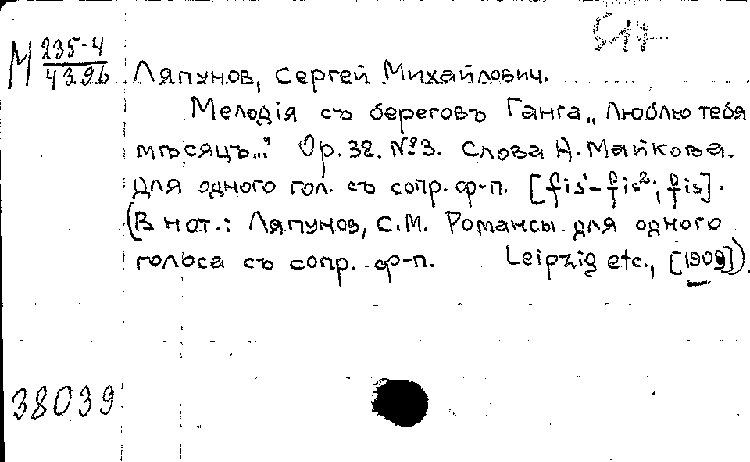 511
М 235-4
4396
Ляпунов, Сергей Михайлович.
Мелодія съ береговъ Ганга „Люблю тебя
мѣсяцъ..." Op. 32. №3. Слова А. Майкова.
Для одного гол. съ сопр. ф-п. [fis¹-fis²; fis].
(В нот.: Ляпунов, С.М. Романсы для одного
голоса съ сопр. ф-п. Leipzig etc., [1909])
38039